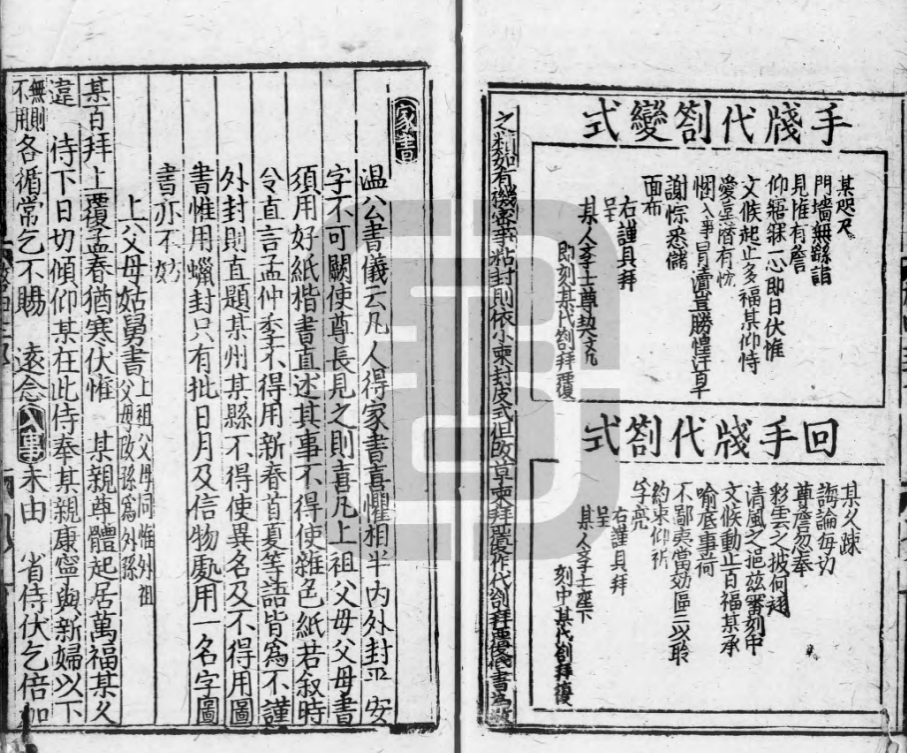 手牋代劄變式
某咫尺
門墻無繇詣
見惟有詹
仰寤寐一心即日伏惟
文候起止多福某仰恃
悃入事冒瀆豈勝惶汗草
謝悰悉儲
面布
右謹具拜
呈
某人学士尊契文几
即刻某代劄拜覆
回手牋代劄式
某久疎
誨論每切
尊詹忽奉
彩雲之披何翅
清風之挹兹審刻中
文候動止百福某承
喻底事苟
不鄙夷當効區區以聆
約束仰祈
孚亮
右謹具拜
呈
某人学士座下
刻中某代劄拜復
之類如有機密事粘封則依小柬封皮式但改草柬拜覆作代劄拜覆
家書
温公書儀云凡人得家書喜懼相半内外封平安
字不可闕使尊長見之則喜凡上祖父母父母書
須用好紙楷書直述其事不得使雜色紙若叙時
令直言孟仲季不得用新春首夏等語皆爲不謹
外封則直題某州某縣不得使異名及不得用圖
書惟用蠟封只有批日月及信物處用一名字圖
書亦不妨
上父母姑舅書上祖父母同惟外祖父母改孫爲外孫
某百拜上覆孟春猶寒伏惟 某親尊體起居萬福某久
違 侍下日切傾仰某在此侍奉某親康寧與新婦以下
無則不用各循常乞不賜 遠念入事未由 省侍伏乞倍加